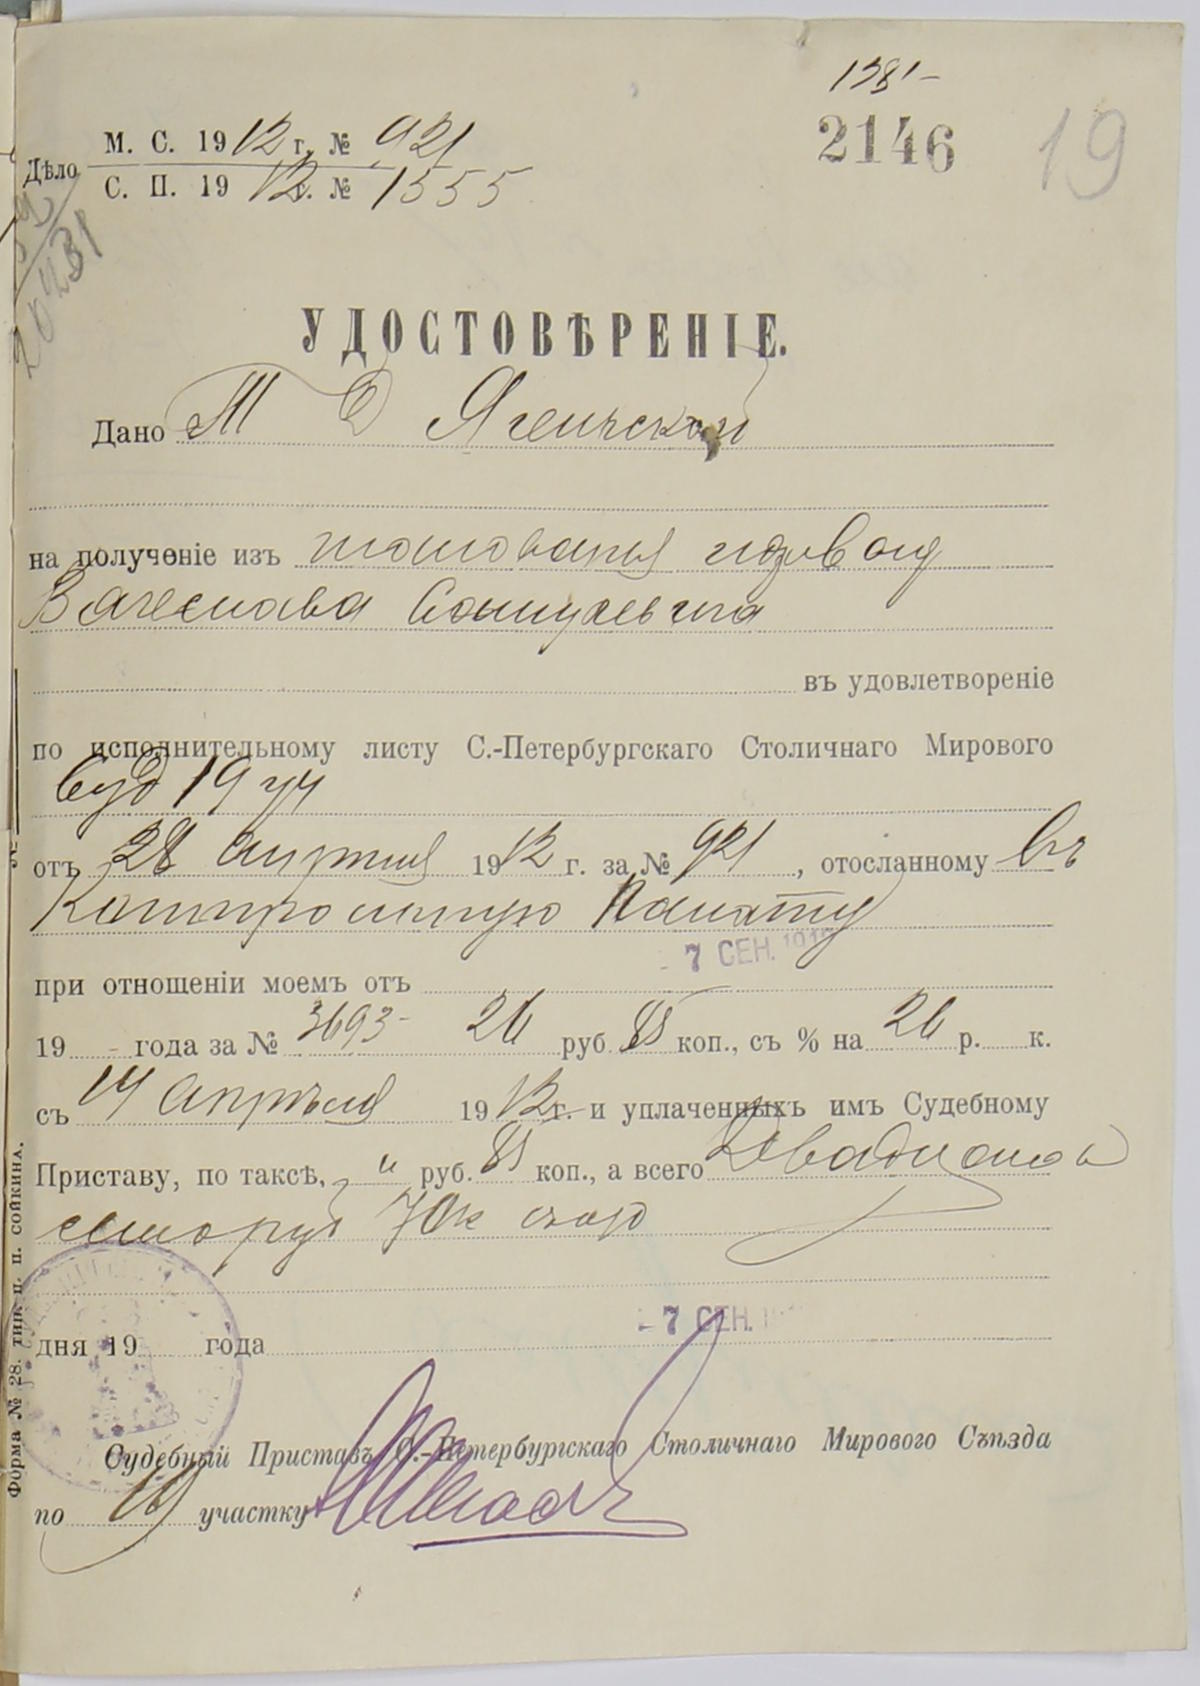 1381-
2146
19
Дѣло М. С. 1912 г. № 921
С. П. 19 12 г. № 1555
20431
УДОСТОВѢРЕНІЕ.
Дано Т Д
на получение изъ
Вячеслава
въ удовлетвореніе
по исполнительному листу С.-Петербургскаго Столичнаго Мирового
Суд 19 уч
отъ 28 апрѣля 1912 г. за № 921, отосланному въ
Контрольную Палату
- 7 СЕН. 1912
при отношеніи моемъ отъ
19 - года за № 3693- 26 руб 85 коп., съ % на 26 р. к.
съ 14 апрѣля 1912 г. и уплаченныхъ имъ Судебному
Приставу, по таксѣ, " руб. 85 коп., а всего Двадцать
семь руб 70 к
- 7 СЕН. 19
дня 19 года
Судебный Приставъ С.-Петербургскаго Столичнаго Мирового Съѣзда
по 19 участку
Форма № 28. тип. п. п. сойкина.